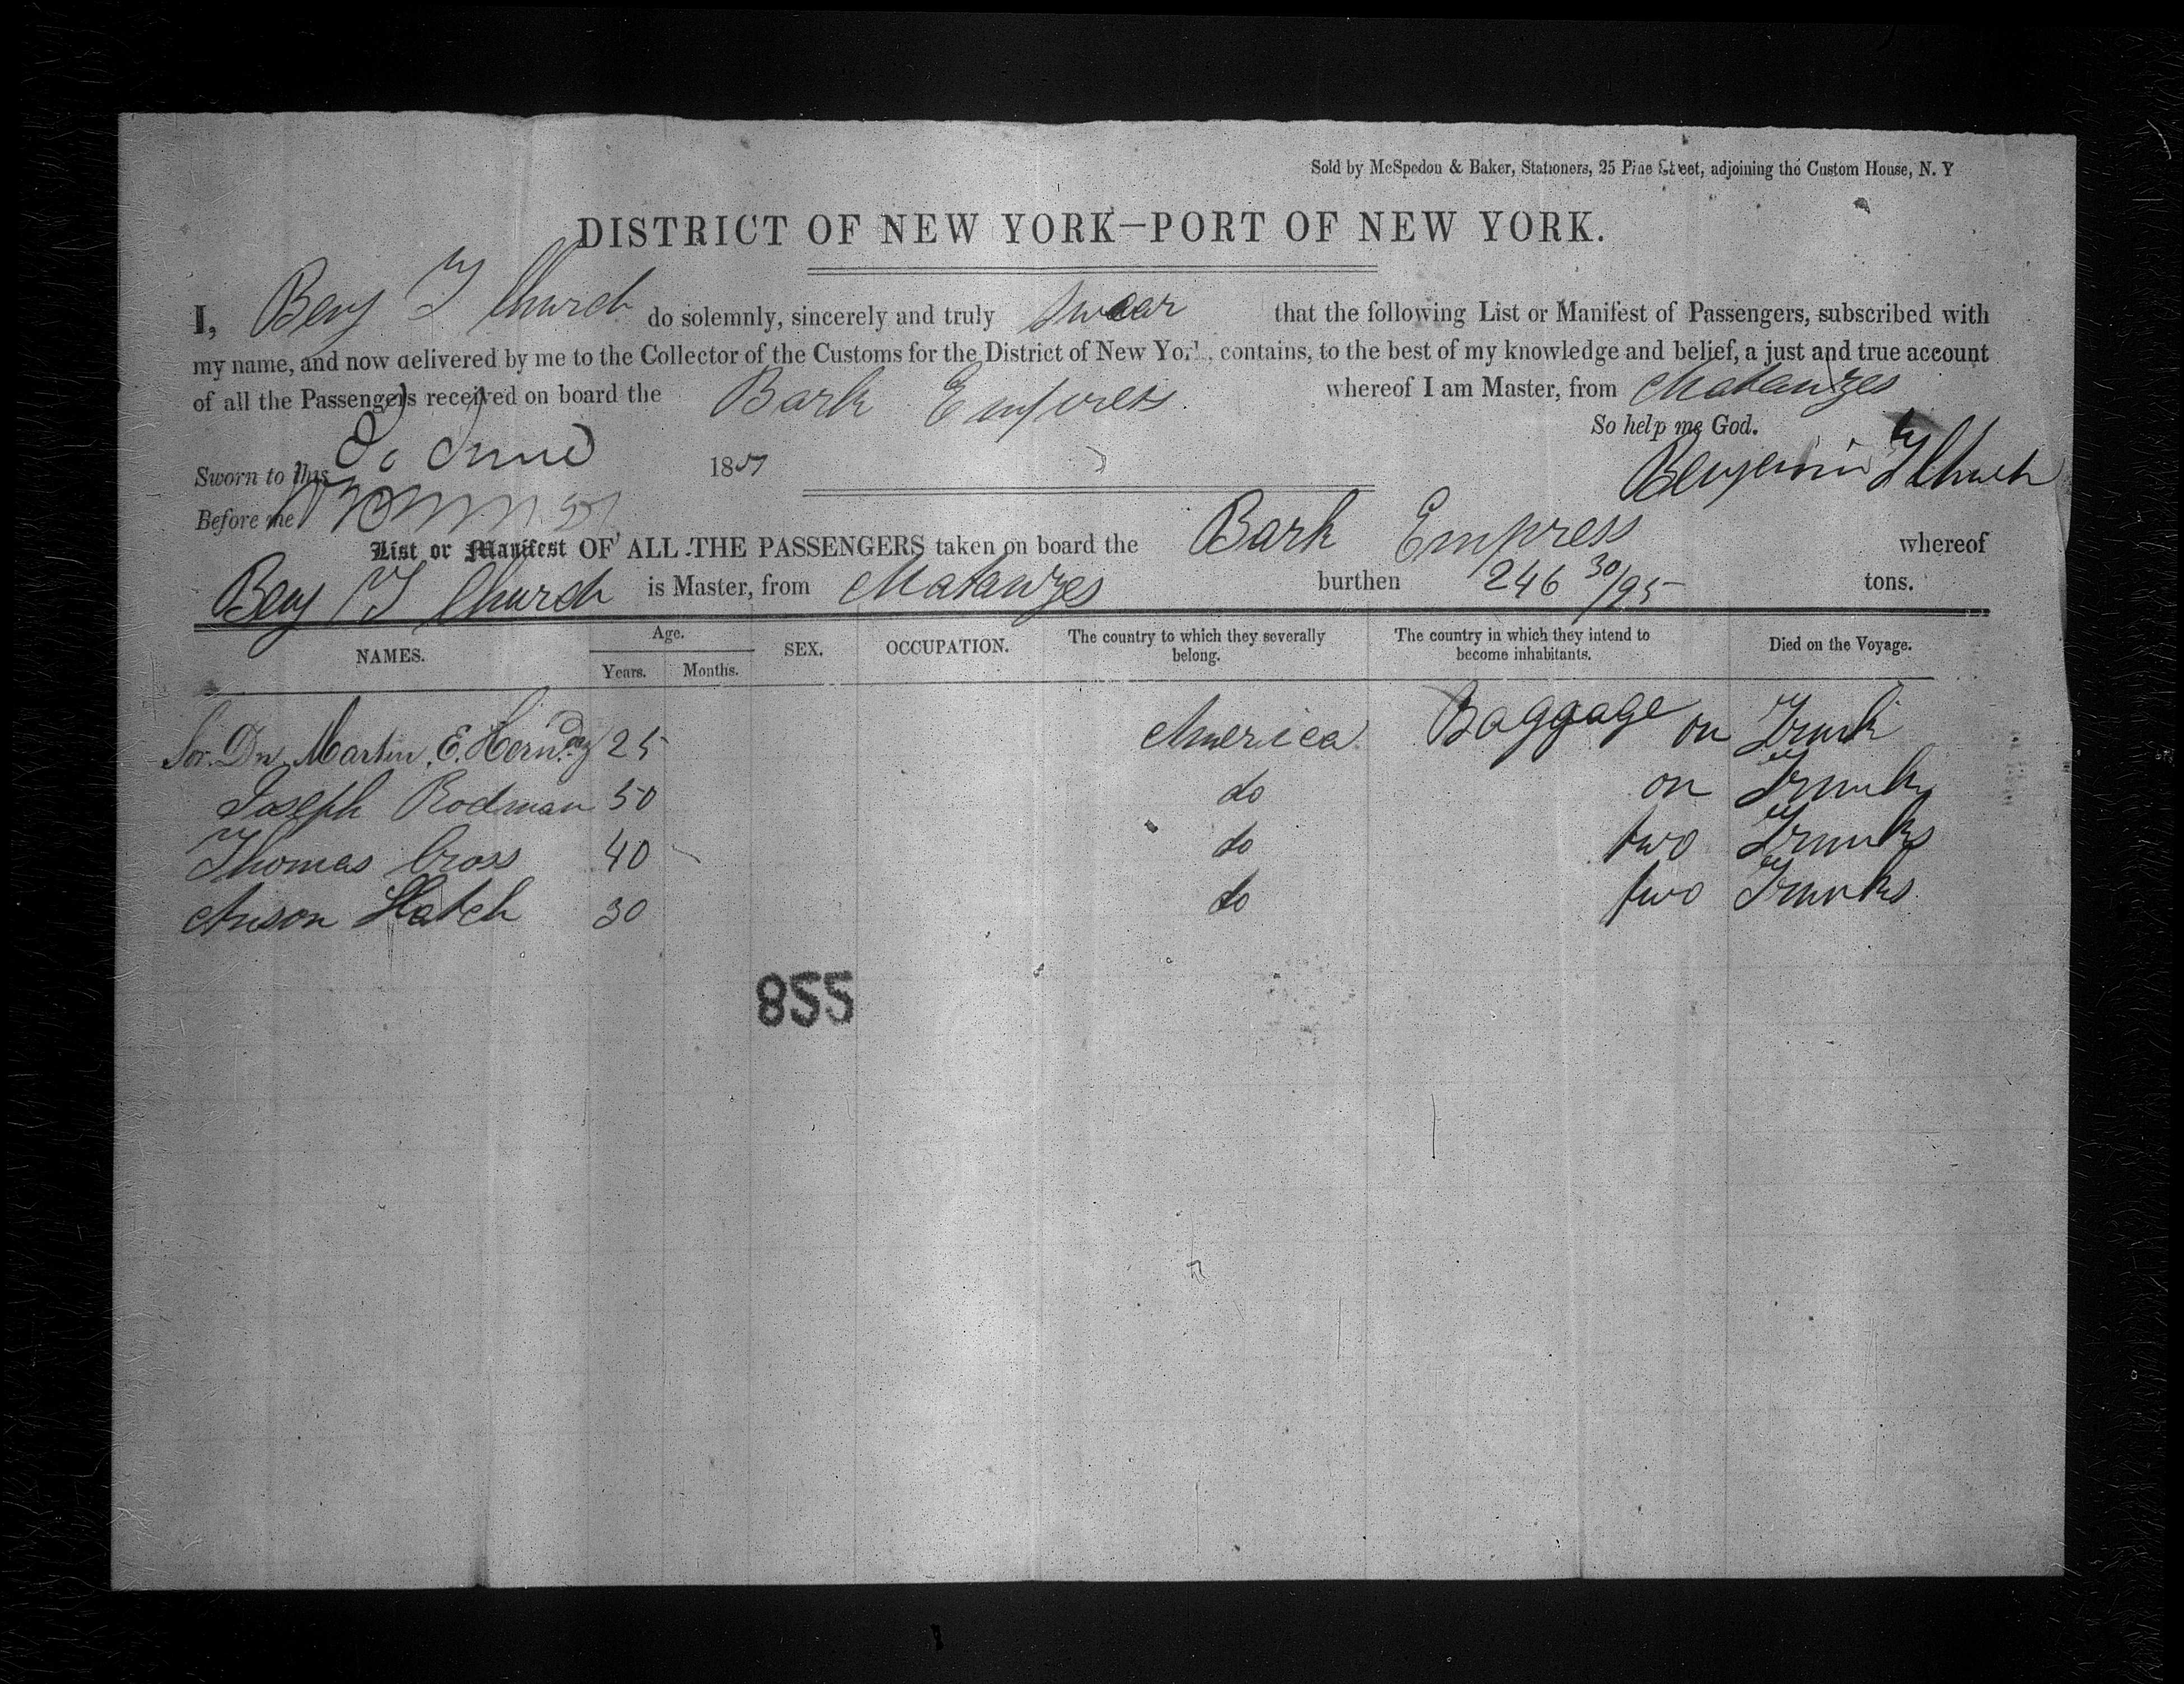 Sold by McSpedon & Baker, Stationers, 25 Pine Street, adjoining the Custom House, N. Y
DISTRICT OF NEW YORK—PORT OF NEW YORK.
I, Benj T Church do solemnly, sincerely and truly swear that the following List or Manifest of Passengers, subscribed with
my name, and now delivered by me to the Collector of the Customs for the District of New York, contains, to the best of my knowledge and belief, a just and true account
of all the Passengers received on board the Bark Empress whereof I am Master, from Matanzes
So help me God.
Sworn to this June 185
Benjamin T Church
Before me
List or Manifest OF ALL THE PASSENGERS taken on board the Bark Empress whereof
Benj T Church is Master, from Matanzes burthen 246 30/95 tons.
NAMES. Age. Years. Months. SEX. OCCUPATION. The country to which they severally belong. The country in which they intend to become inhabitants. Died on the Voyage.
Sor. Dn. Martin E. Herndez 25 America Baggage on Trunk
Joseph Rodman 50 do on Trunk
Thomas Cross 40 do two Trunks
Anson Hatch 30 do two Trunks
855